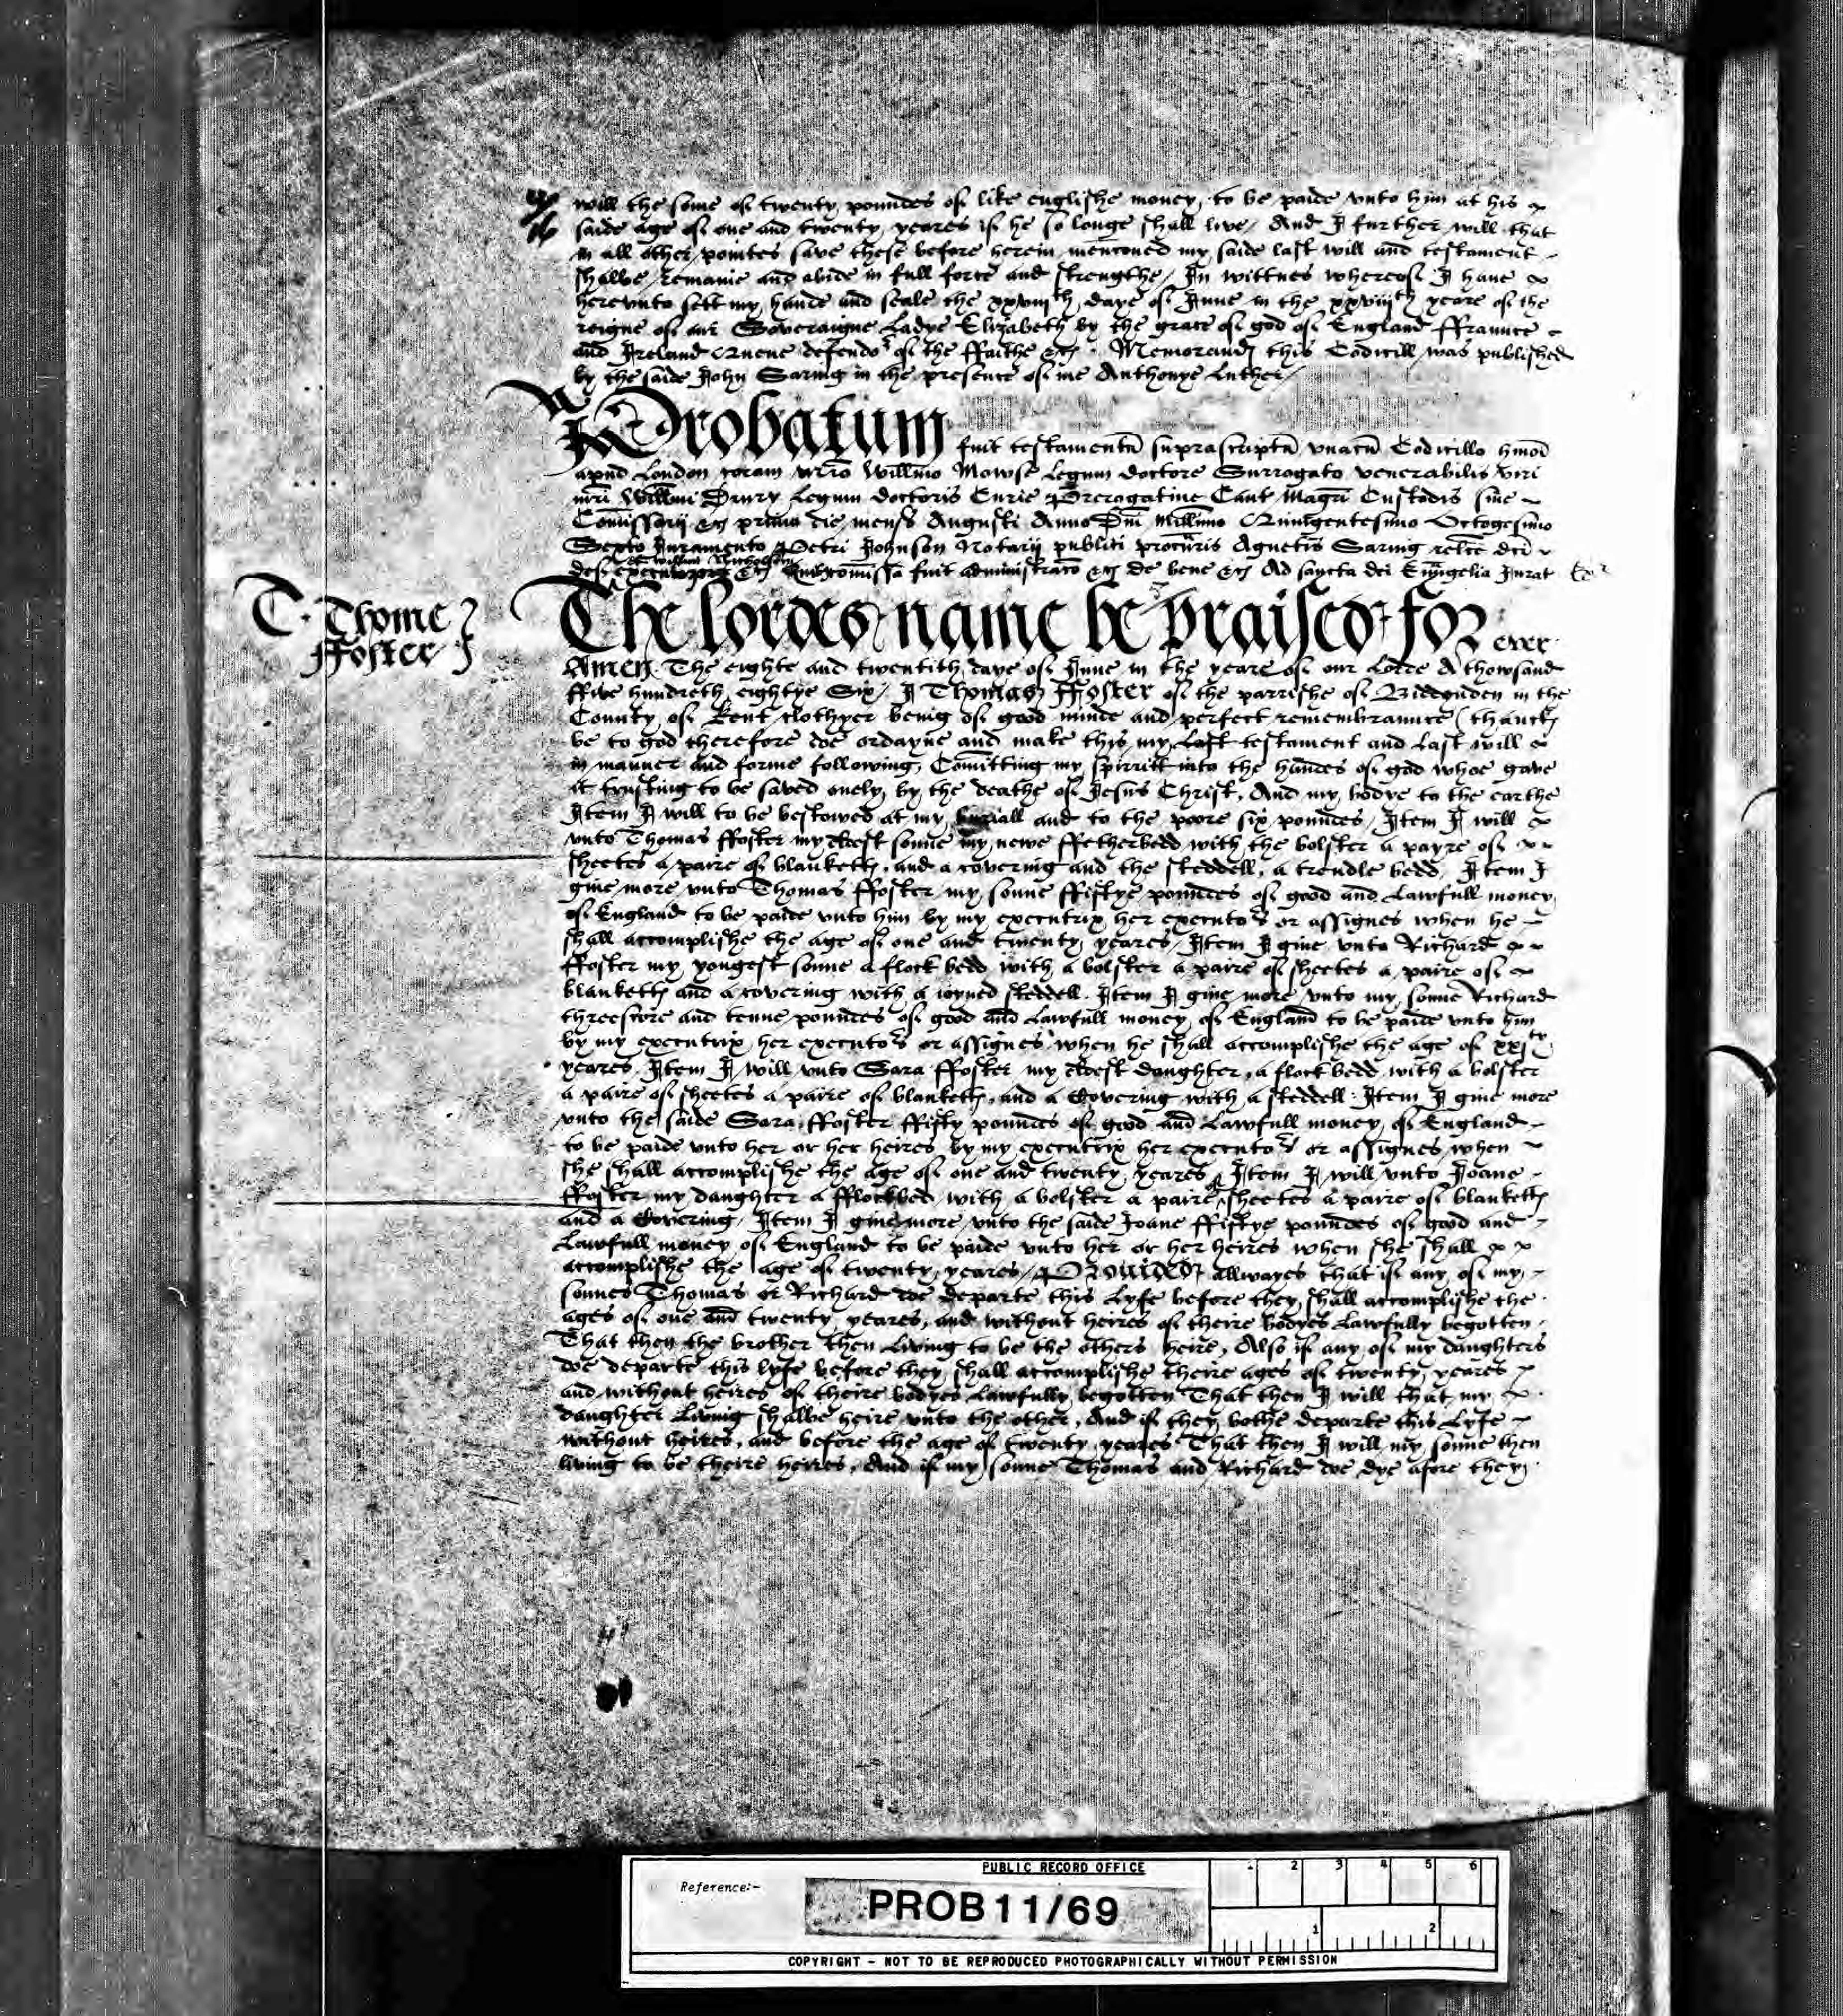 will the some of twenty poundes of like englishe money, to be paide vnto him at his
saide age of one and twenty yeares if he so longe shall live / And I further will that
in all other pointes save these before herein menconed my saide last will and testament
shalbe remanie and abide in full force and strengthe / In wittnes whereof I have
herevnto sett my hande and seale the xxviijth daye of June in the xxviijth yeare of the
reigne of our Soveraigne Ladye Elizabeth by the grace of god of England ffraunce
and Ireland Quene defendor of the ffaithe &c. Memorand this Codicill was published
by the saide John Saring in the presence of me Anthonye Luther /
Probatum fuit testamentu suprascriptu vnacu Codicillo hmoi
apud London coram mro Willmo Mowse legum doctore Surrogato venerabilis viri
mri Willmi Drury legum doctoris Curie Prerogative Cant Magri Custodis sive
Comissarij &c primo die mens Augusti Anno Dni Millimo Quingentesimo Octogesimo
Sexto Juramento Petri Johnson Notarij publici procuris Agnetis Saring relce dci
et William Nicholson
def executorum &c Quibus comissa fuit administraco &c de bene &c Ad sancta dei Evangelia Jurat
T. Thome
ffoster
The lordes name be praised for ever
Amen. The eighte and twentith daye of June in the yeare of our Lorde A thowsand
ffive hundreth eightye Six / I Thomas ffoster of the parrishe of Biddenden in the
County of Kent clothyer being of good minde and perfect remembraunce (thanck
be to god therefore doe ordayne and make this my Last testament and Last will
in manner and forme following, Comitting my spirritt into the handes of god whoe gave
it trusting to be saved onely by the deathe of Jesus Christ, And my bodye to the earthe
Item I will to be bestowed at my buriall and to the poore six poundes / Item I will
vnto Thomas ffoster my eldest sonne my newe ffetherbedd with the bolster a payre of
sheetes a paire of blankett, and a covering and the steddell, a trendle bedd. Item I
give more vnto Thomas ffoster my sonne ffiftye poundes of good and Lawfull money
of England to be paide vnto him by my executrix her executors or assignes when he
shall accomplishe the age of one and twenty yeares / Item I give vnto Richard
ffoster my yongest sonne a flock bedd with a bolster a paire of sheetes a paire of
blankett and a covering with a ioyned steddell. Item I give more vnto my sonne Richard
threescore and tenne poundes of good and Lawfull money of England to be paide vnto him
by my executrix her executors or assignes when he shall accomplishe the age of xxjty
yeares. Item I will vnto Sara ffoster my eldest daughter, a flock bedd with a bolster
a paire of sheetes a paire of blankett, and a Covering with a steddell. Item I give more
vnto the saide Sara ffoster ffifty poundes of good and Lawfull money of England
to be paide vnto her or her heires by my executrix her executors or assignes when
she shall accomplishe the age of one and twenty yeares Item I will vnto Joane
ffoster my daughter a fflockbed with a bolster a paire of sheetes a paire of blankett
and a Covering. Item I give more vnto the saide Joane ffiftye poundes of good and
Lawfull money of England to be paide vnto her or her heires when she shall
accomplishe the age of twenty yeares / Provided allwayes that if any of my
sonnes Thomas or Richard doe departe this Lyfe before they shall accomplishe the
ages of one and twenty yeares, and without heires of theire bodyes Lawfully begotten,
That then the brother then Living to be the others heire, Also if any of my daughters
doe departe this lyfe before they shall accomplishe theire ages of twenty yeares
and without heires of theire bodyes Lawfully begotten That then I will that my
daughter Living shalbe heire vnto the other, And if they bothe departe this Lyfe
without heires, and before the age of twenty yeares That then I will my sonne then
living to be theire heires, And if my sonne Thomas and Richard doe dye afore they
PUBLIC RECORD OFFICE
Reference:-
PROB 11/69
1 2 3 4 5 6
1 2
COPYRIGHT - NOT TO BE REPRODUCED PHOTOGRAPHICALLY WITHOUT PERMISSION